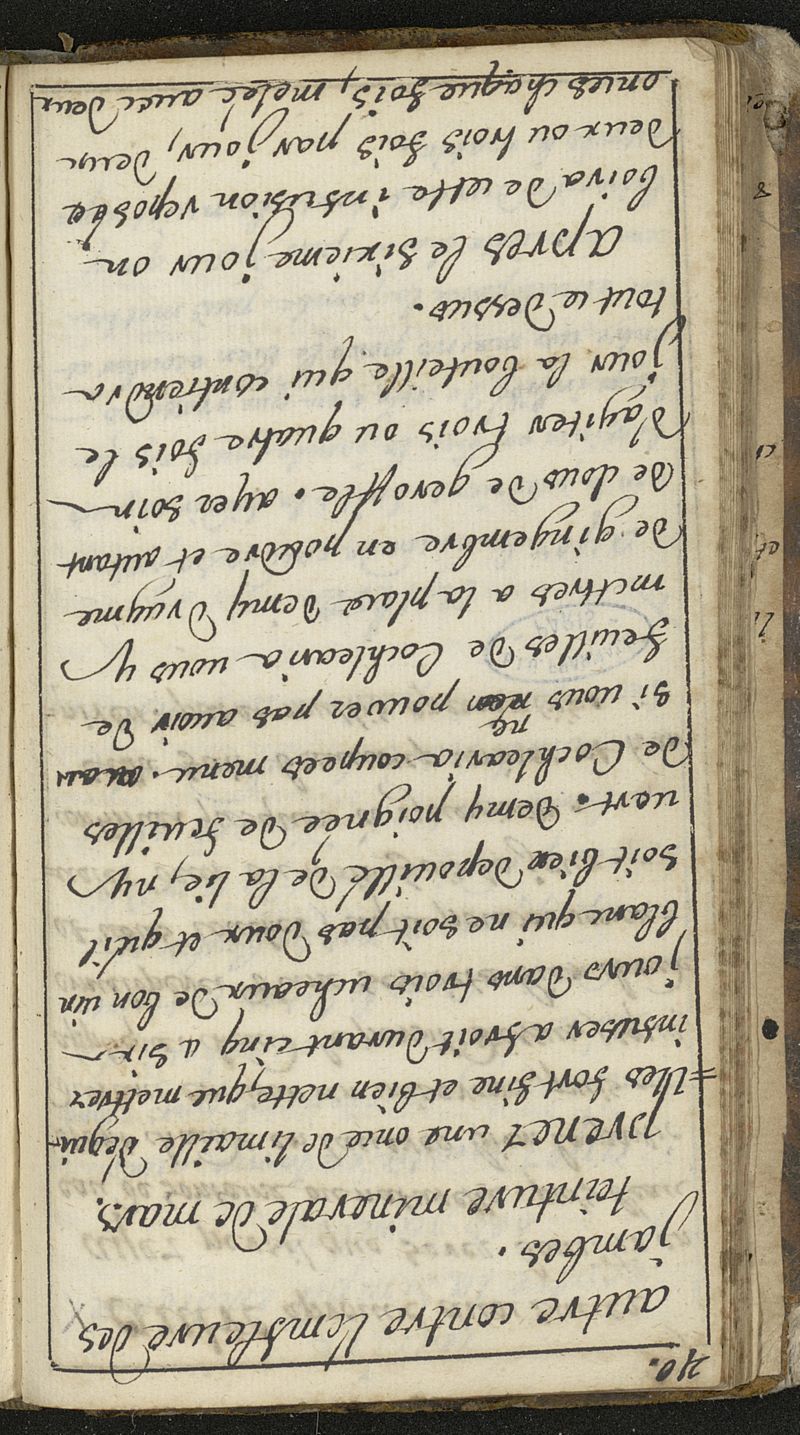 40.
autre contre l'emfleure des
jambes.
teinture minerale de mars.
prenez une once de limaille d'egui-
=lles fort fine et bien nette, que mettrez
infuser a froit durant cinq a six
jours dans trois ucheaux de bon vin
blanc qui ne soit pas doux et qu'il
soit bien depouillé de la lie, ny
vert. demy poignée de feuilles
de Cochlearia coupees menu.
si vous n'en pouvez pas avoir de
feuilles de Cochlearia vous y
mettres a la place demy dragme
de gingembre en poudre et autant
de clous de geroffle. ayez soin
d'agiter trois ou quatre fois le
jour la bouteille qui contiendra
tout ce dessus.
apres le sixieme jour on
boira de cette infusion reposée
deux ou trois fois par jour, deux
onces chaque fois, meleé avec deux